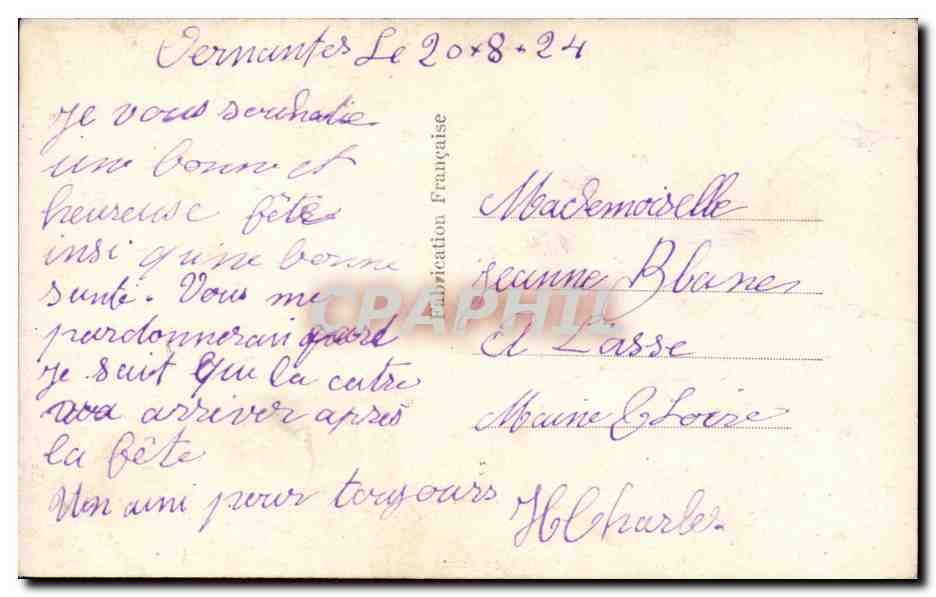 Vernantes Le 20.8.24
Je vous souhaite
une bonne et
heureuse fête
insi qu'une bonne
santé. Vous me
pardonnerai quard
je sait que la catre
vva arriver après
la fête
Un ami pour toujours
H Charles
Fabrication Française
Mademoiselle
Jeanne Blanes
A Lasse
Maine & Loire
CPAPHIL